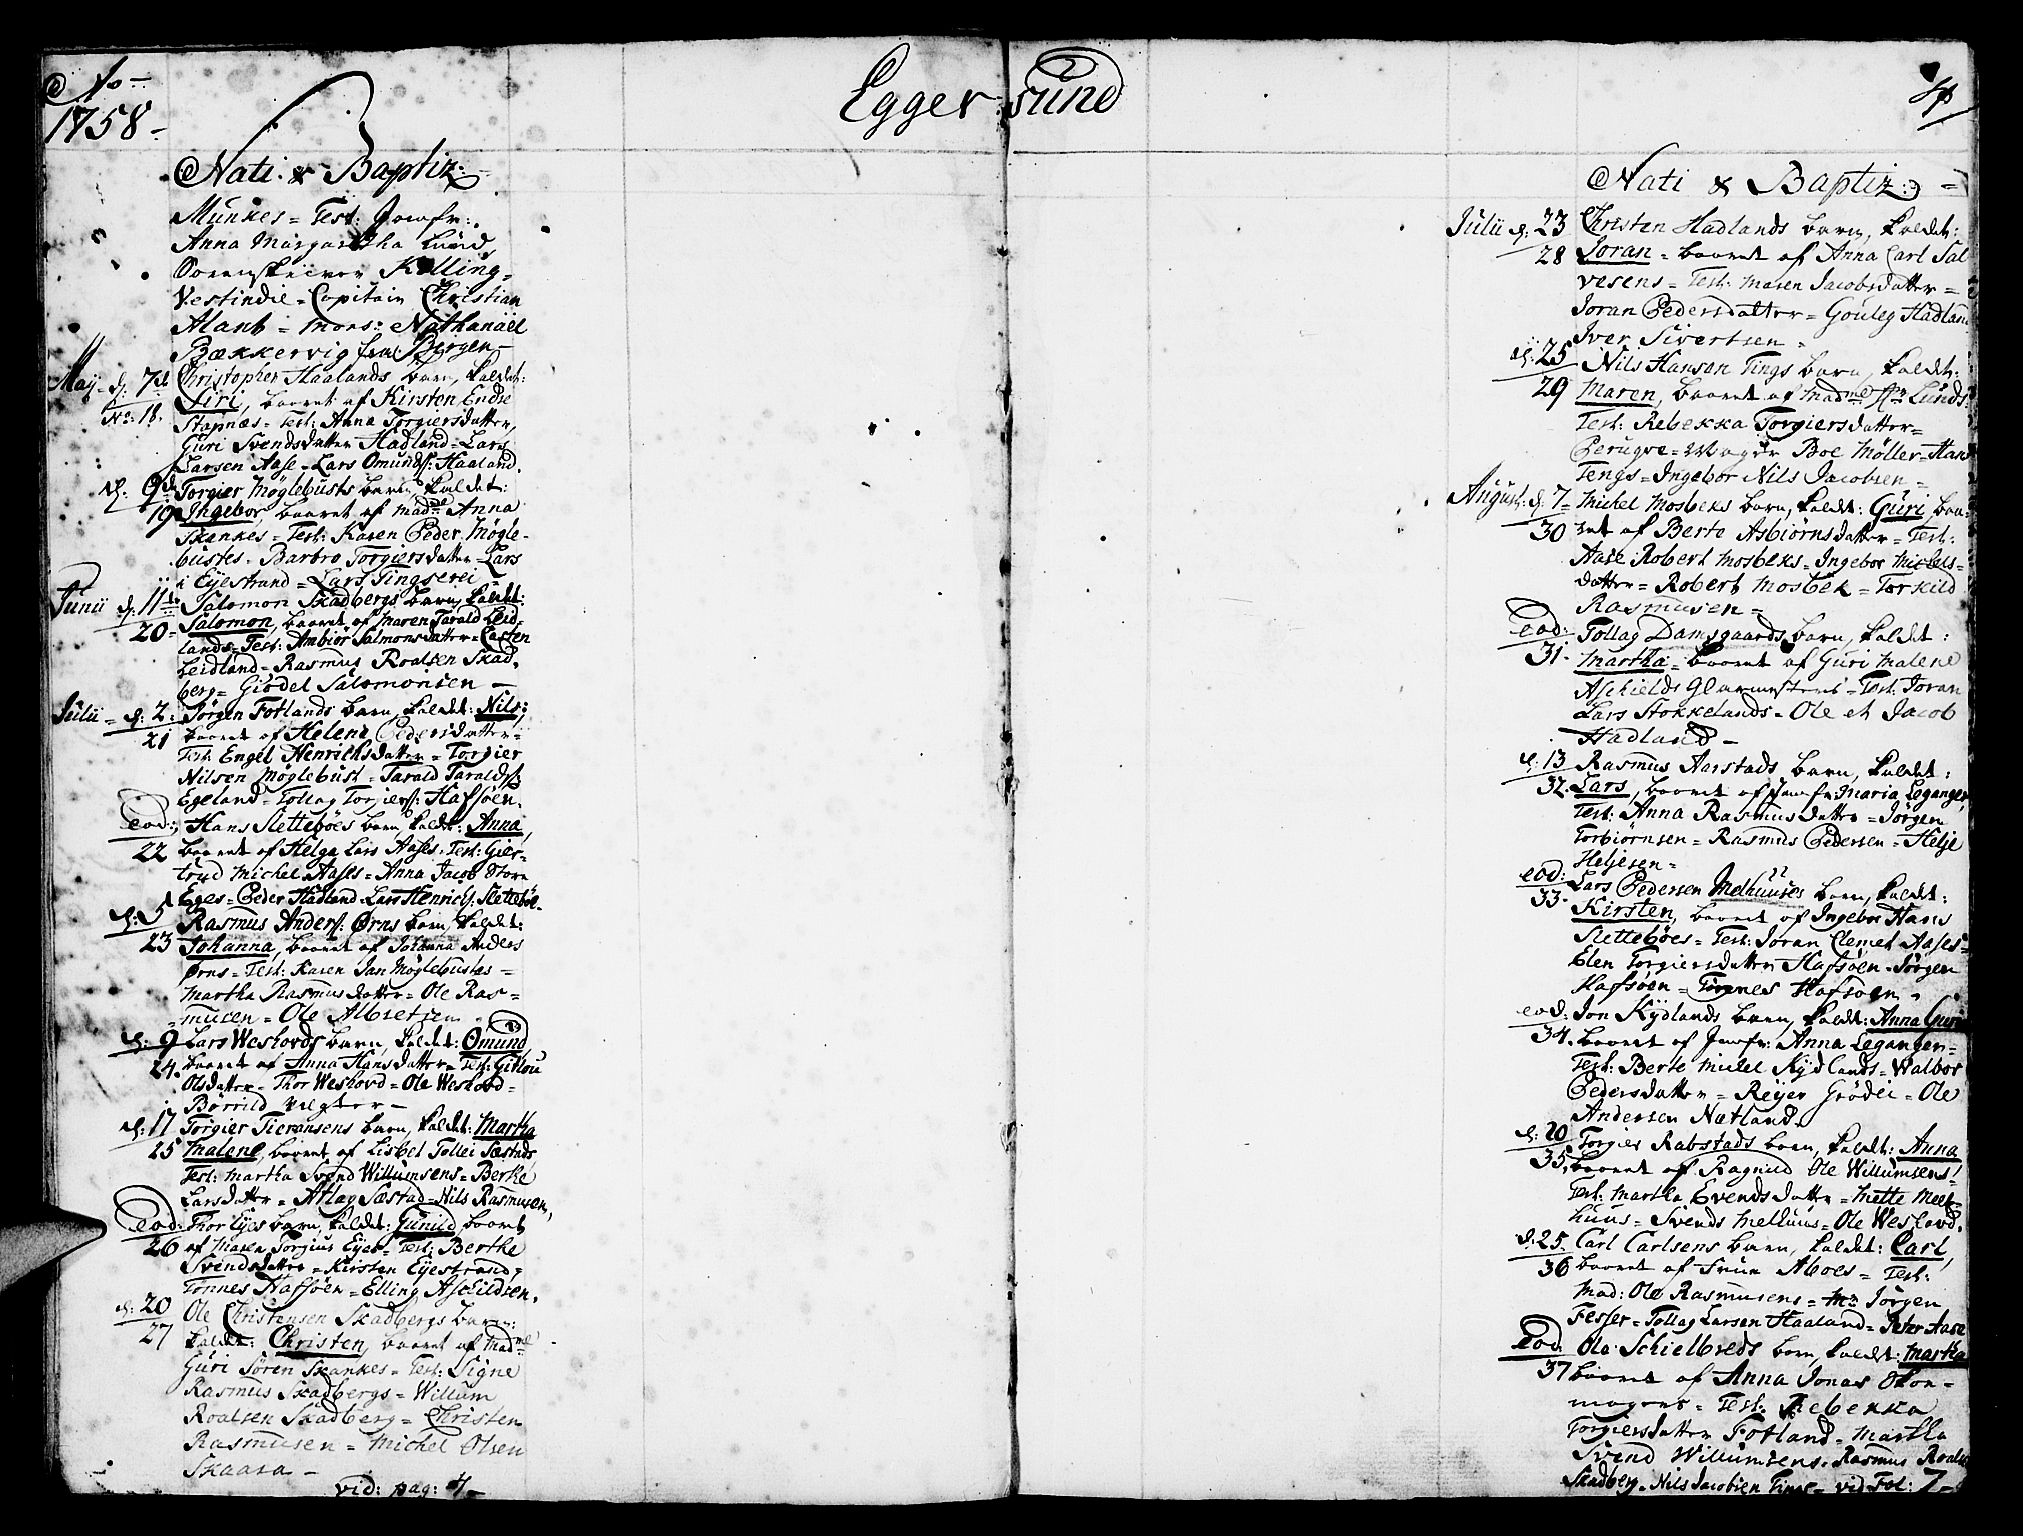 Ao
1758
Eggersund
4
Nati & Baptiz:
Munkes = Test: Jomfr:
Anna Margaretha Lund
Sorenskriver Kelling =
Vestindie = Capitain Christian
Alant = Mons: Nathanaël
Bækkervig fra Bergen
May d. 7de Christopher Haalands barn, kaldet:
No: 18. Siri, baaret af Kirsten Endre
Stapnæs = Test: Anna Torgiersdatter,
Guri Svendsdatter Hadland = Lars
Larsen Aase = Lars Omunds: Haaland.
d. 9de Torgier Möglebusts barn, kaldet:
19 Ingebor, baaret af Madme Anna
Skankes = Test: Karen Peder Mögle-
bustes = Barbro Torgiersdatter = Lars
i Eyestrand = Lars Tingserei
Junii d. 11te Salomon Skadbergs barn, kaldet:
20 Salomon, baaret af Maren Tarald Leid-
lands = Test: Ambiör Salmonsdatter = Carsten
Leidland = Rasmus Roalsen Skad-
berg = Giödel Salomonsen
Julii d. 2 Jörgen Fotlands barn, kaldet: Nils,
21 baaret af Helene Pedersdatter =
Test: Engel Henrichsdatter = Torgier
Nilsen Möglebust = Tarald Taralds:
Egeland = Tollag Torgiers: Hafsöen.
eod: Hans Sletteböes barn, kaldet: Anna,
22 baaret af Helga Lars Aases = Test: Gier-
trud Michel Aases = Anna Jacob Store
Eges = Peder Hadland = Lars Henrichs: Sletteböe.
d. 5 Rasmus Anders: Örns barn, kaldet:
23 Johanna, baaret af Johanna Anders
Örns = Test: Karen Jan Möglebustes =
Martha Rasmusdatter = Ole Ras-
musen = Ole Albretsen
d. 9 Lars Weshovds barn, kaldet: Omund
24. baaret af Anna Hansdatter = Test: Gitlou
Olsdatter = Thor Weshovd = Ole Weshovd =
Börrild
d. 17 Torgier Tieransens barn, kaldet: Martha
25 Malene, baaret af Lisbet Tollei Sæstads
Test: Martha Svend Willumsens = Berthe
Larsdatter = Atlag Sæstad = Nils Rasmusen,
eod: Thor Eyes barn, kaldet: Gunild, baaret
26 af Maren Torgius Eyes = Test: Berthe
Svendsdatter = Kirsten Eyestrand,
Tönnes Hafsöen = Elling Aschildsen.
d. 20 Ole Christensen Skadbergs barn,
27 kaldet: Christen, baaret af Madme
Guri Sören Skankes = Test: Signe
Rasmus Skadbergs = Willum
Roalsen Skadberg = Christen
Rasmusen = Michel Olsen
Skaara
vid: pag: 4
Nati & Baptiz:
Julii d. 23 Christen Hadlands barn, kaldet:
28 Joran = baaret af Anna Carl Sal
vesens = Test: Maren Jacobsdatter =
Joran Pedersdatter = Gouleg Hadland
Iver Sivertsen =
d. 25 Nils Hansen Tings barn, kaldet:
29 Maren, baaret af Madme Hr Lunds
Test: Rebekka Torgiersdatter =
Boe Möller = Hans
Tengs = Ingebor Nils Jacobsen =
August: d. 7 Michel Mosbeks barn, kaldet: Guri, baa-
30 ret af Berte Asbiörnsdatter = Test:
Aase Robert Mosbeks = Ingebor Michels-
datter = Robert Mosbek = Torkild
Rasmusen =
eod: Tollag Damsgaards barn, kaldet:
31. Martha = baaret af Guri Malene
Aschields Glarmesters = Test: Joran
Lars Stokkelands = Ole et Jacob
Hadland
d. 13 Rasmus Aarstads barn, kaldet:
32 Lars, baaret af Jomfr: Maria Leganger
Test: Anna Rasmusdatter = Jörgen
Torbiörnsen = Rasmus Pedersen = Helje
Heljesen =
eod: Lars Pedersen Melhuuses barn, kaldet:
33 Kirsten, baaret af Ingebor Hans
Sletteböes = Test: Joran Clemet Aases =
Elen Torgiersdatter Hafsöen = Jörgen
Hafsöen = Tönnes Hafsöen
eod: Jon Kydlands barn, kaldet: Anna Guri
34. baaret af Jomfr: Anna Leganger =
Test: Berte Michel Kydlands = Walbor
Pedersdatter = Reyer Grödei = Ole
Andersen Netland.
d. 20 Torgier Rabstads barn, kaldet: Anna
35. baaret af Ragnild Ole Willumsens
Test: Martha Evendsdatter = Mette Mel-
huus = Svends Melhuus = Ole Weshovd.
d. 25. Carl Carlsens barn, kaldet: Carl,
36 baaret af Frue Aboes = Test:
Mad: Ole Rasmusens = Mr Jörgen
Fesser = Tollag Larsen Haaland = Peter Aase
eod Ole Schielbreds barn, kaldet: Martha
37 baaret af Anna Jonas Skoe-
magers = Test: Rebekka
Torgiersdatter Fotland = Martha
Svend Willumsens = Rasmus Roals
Skadberg = Nils Jacobsen Tings = vid Fol: 7